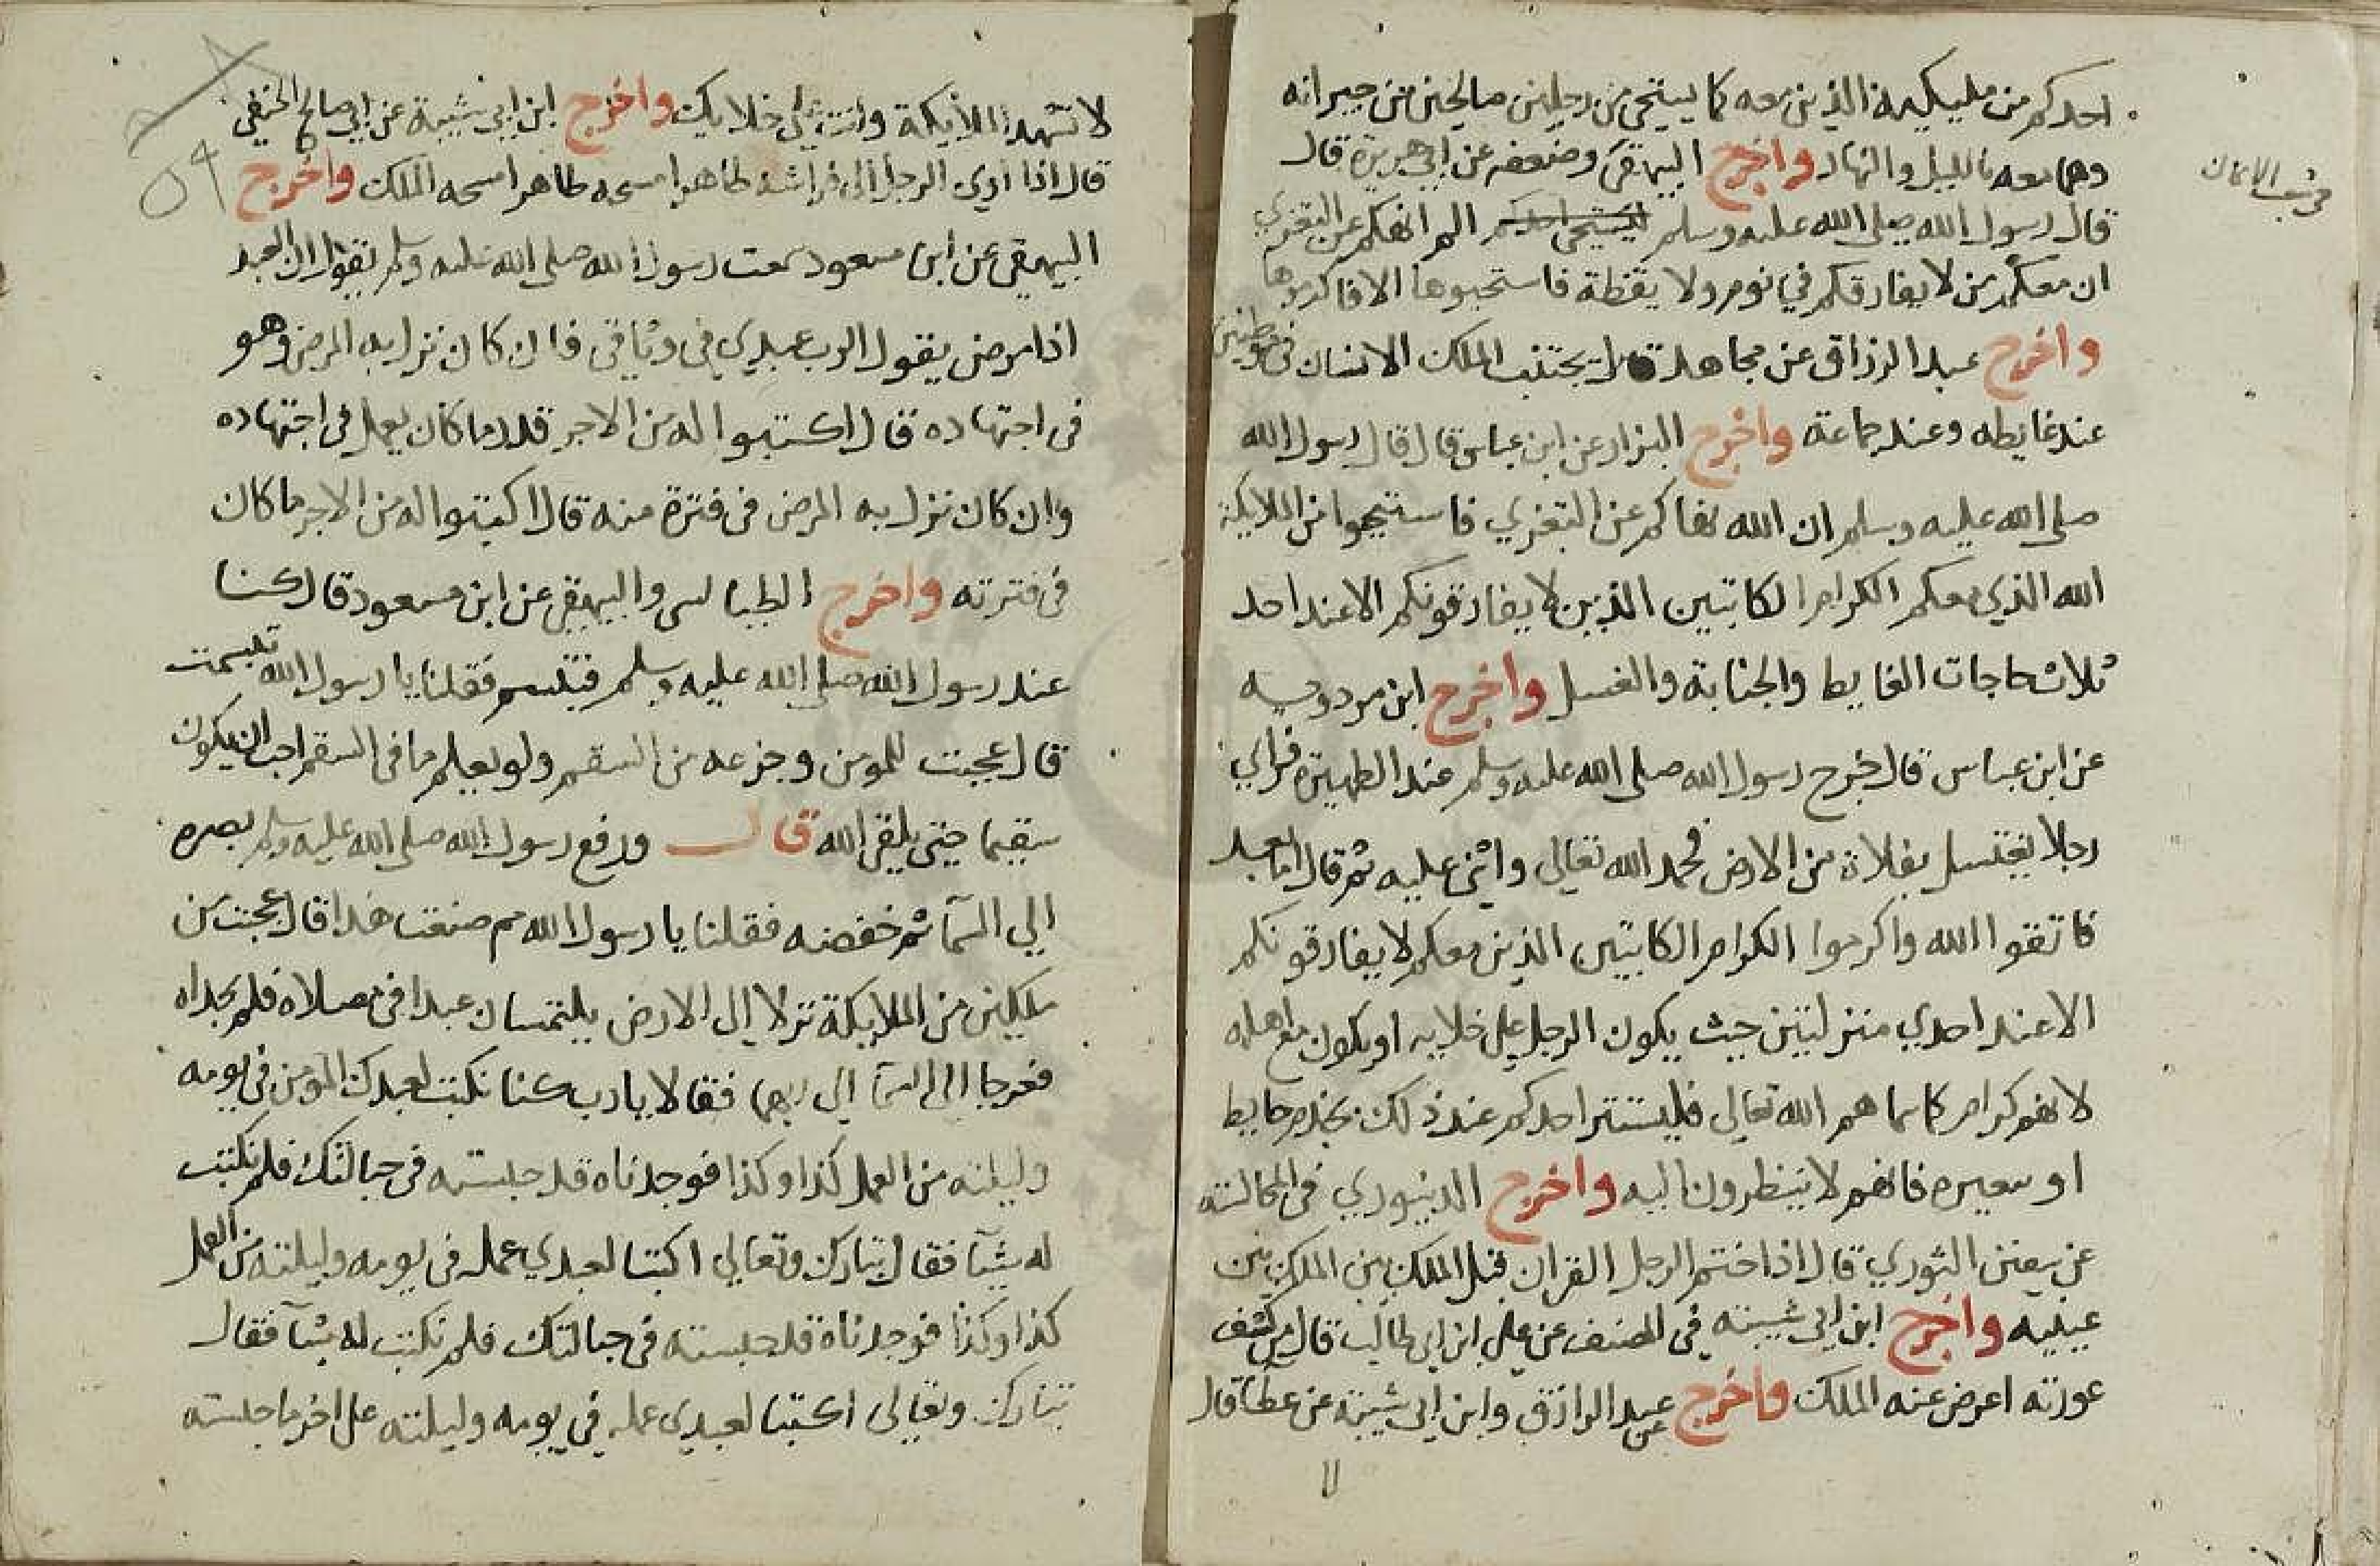 احدكم من مليكيه الذين معه كما يستحي من رجلين صالحين من جيرانه
وهما معه بالليل والنهار واخرج البيهقي وضعفه عن ابي هريرة قال
قال رسول الله صلى الله عليه وسلم الم انهكم عن التعري
ان معكم من لا يفارقكم في نوم ولا يقظة فاستحيوها الا فاكرموها
واخرج عبد الرزاق عن مجاهد قال يجتنب الملك الانسان في موطنين
عند غايطه وعند جماعة واخرج البزار عن ابن عباس قال قال رسول الله
صلى الله عليه وسلم ان الله نهاكم عن التعري فاستحيوا من الملايكة
الله الذي معكم الكرام الكاتبين الذين لا يفارقونكم الا عند احد
ثلاث حاجات الغايط والجنابة والغسل واخرج ابن مردويه
عن ابن عباس قال خرج رسول الله صلى الله عليه وسلم عند الظهيرة فراي
رجلا يغتسل بفلاة من الارض فحمد الله تعالى واثنى عليه ثم قال اما بعد
فاتقوا الله واكرموا الكرام الكاتبين الذين معكم لا يفارقونكم
الا عند احدي منزلتين حيث يكون الرجل على خلايه او يكون مع اهله
لانهم كرام كما سماهم الله تعالى فليستتر احدكم عند ذلك بجذم حايط
او ببعيره فانهم لا ينظرون اليه واخرج الدينوري في المجالسة
عن سفين الثوري قال اذا ختم الرجل القران قبل الملك بين
عينيه واخرج ابن ابي شيبة في المصنف عن علي ابن ابي طالب قال من كشف
عورته اعرض عنه الملك واخرج عبد الرازق وابن ابي شيبة عن عطا قال
لا
لا تشهد الملايكة وانت على خلايك واخرج ابن ابي شيبة عن ابي صالح الحنفي
قال اذا اوي الرجل الى فراشه طاهرا مسحه طاهرا مسحه الملك واخرج
البيهقي عن ابن مسعود سمعت رسول الله صلى الله عليه وسلم يقول ان العبد
اذا مرض يقول الرب عبدي في وثاقي فان كان نزل به المرض وهو
في اجتهاده قال اكتبوا له من الاجر قدر ما كان يعمل في اجتهاده
وان كان نزل به المرض في فترة منه قال اكتبوا له من الاجر ما كان
في فترته واخرج الطيالسي والبيهقي عن ابن مسعود قال كنا
عند رسول الله صلى الله عليه وسلم فتبسم فقلنا يا رسول الله تبسمت
قال عجبت للمومن وجزعه من السقم ولو يعلم ما في السقم احب ان يكون
سقيما حتى يلقى الله قال ورفع رسول الله صلى الله عليه وسلم بصره
الي السمآ ثم خفضه فقلنا يا رسول الله مم صنعت هذا قال عجبت من
ملكين من الملايكة نزلا الى الارض يلتمسان عبدا في مصلاه فلم يجداه
فعرجا الى السمآ الى ربهما فقالا يا رب كنا نكتب لعبدك المومن في يومه
وليلته من العمل كذا وكذا فوجدناه قد حبسته في حبالتك فلم نكتب
له شيآ فقال تبارك وتعالي اكتبا لعبدي عمله في يومه وليلته من العمل
كذا وكذا فوجدناه قد حبسته في حبالتك فلم نكتب له شيآ فقال
تبارك وتعالى اكتبا لعبدي عمله في يومه وليلته على اخر ما حبسته